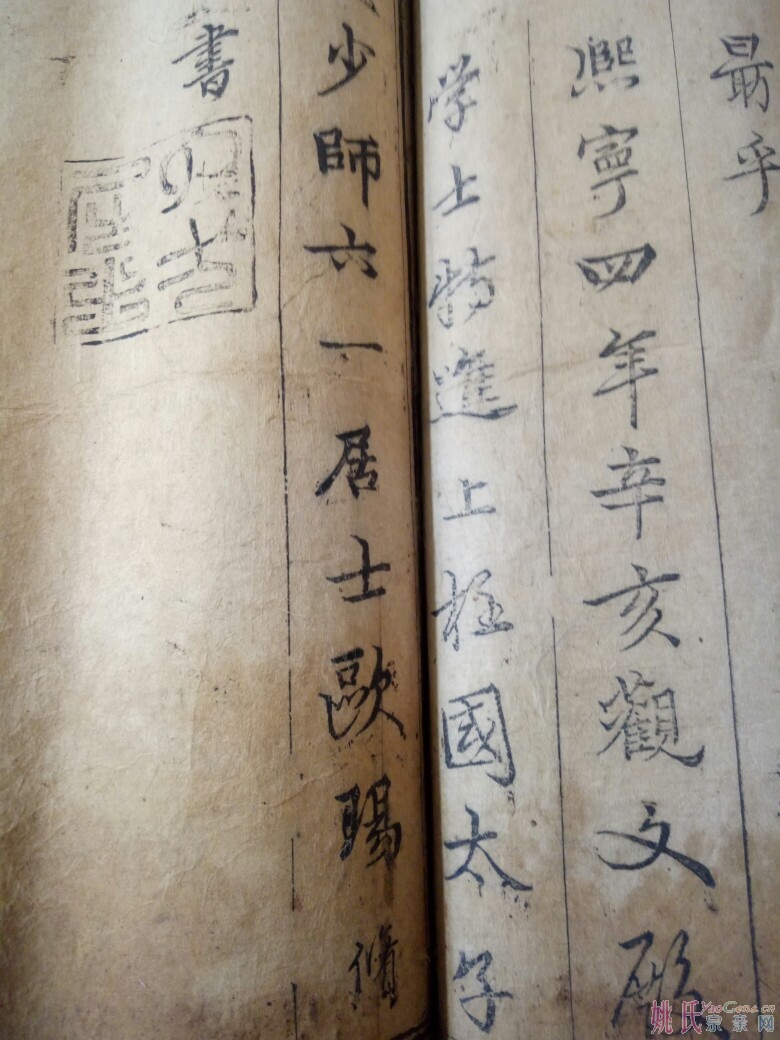 最乎
熙寧四年辛亥觀文殿
学士特進上柱國太子
少師六一居士歐陽脩
書
姚氏宗亲网
YaoGens.cn